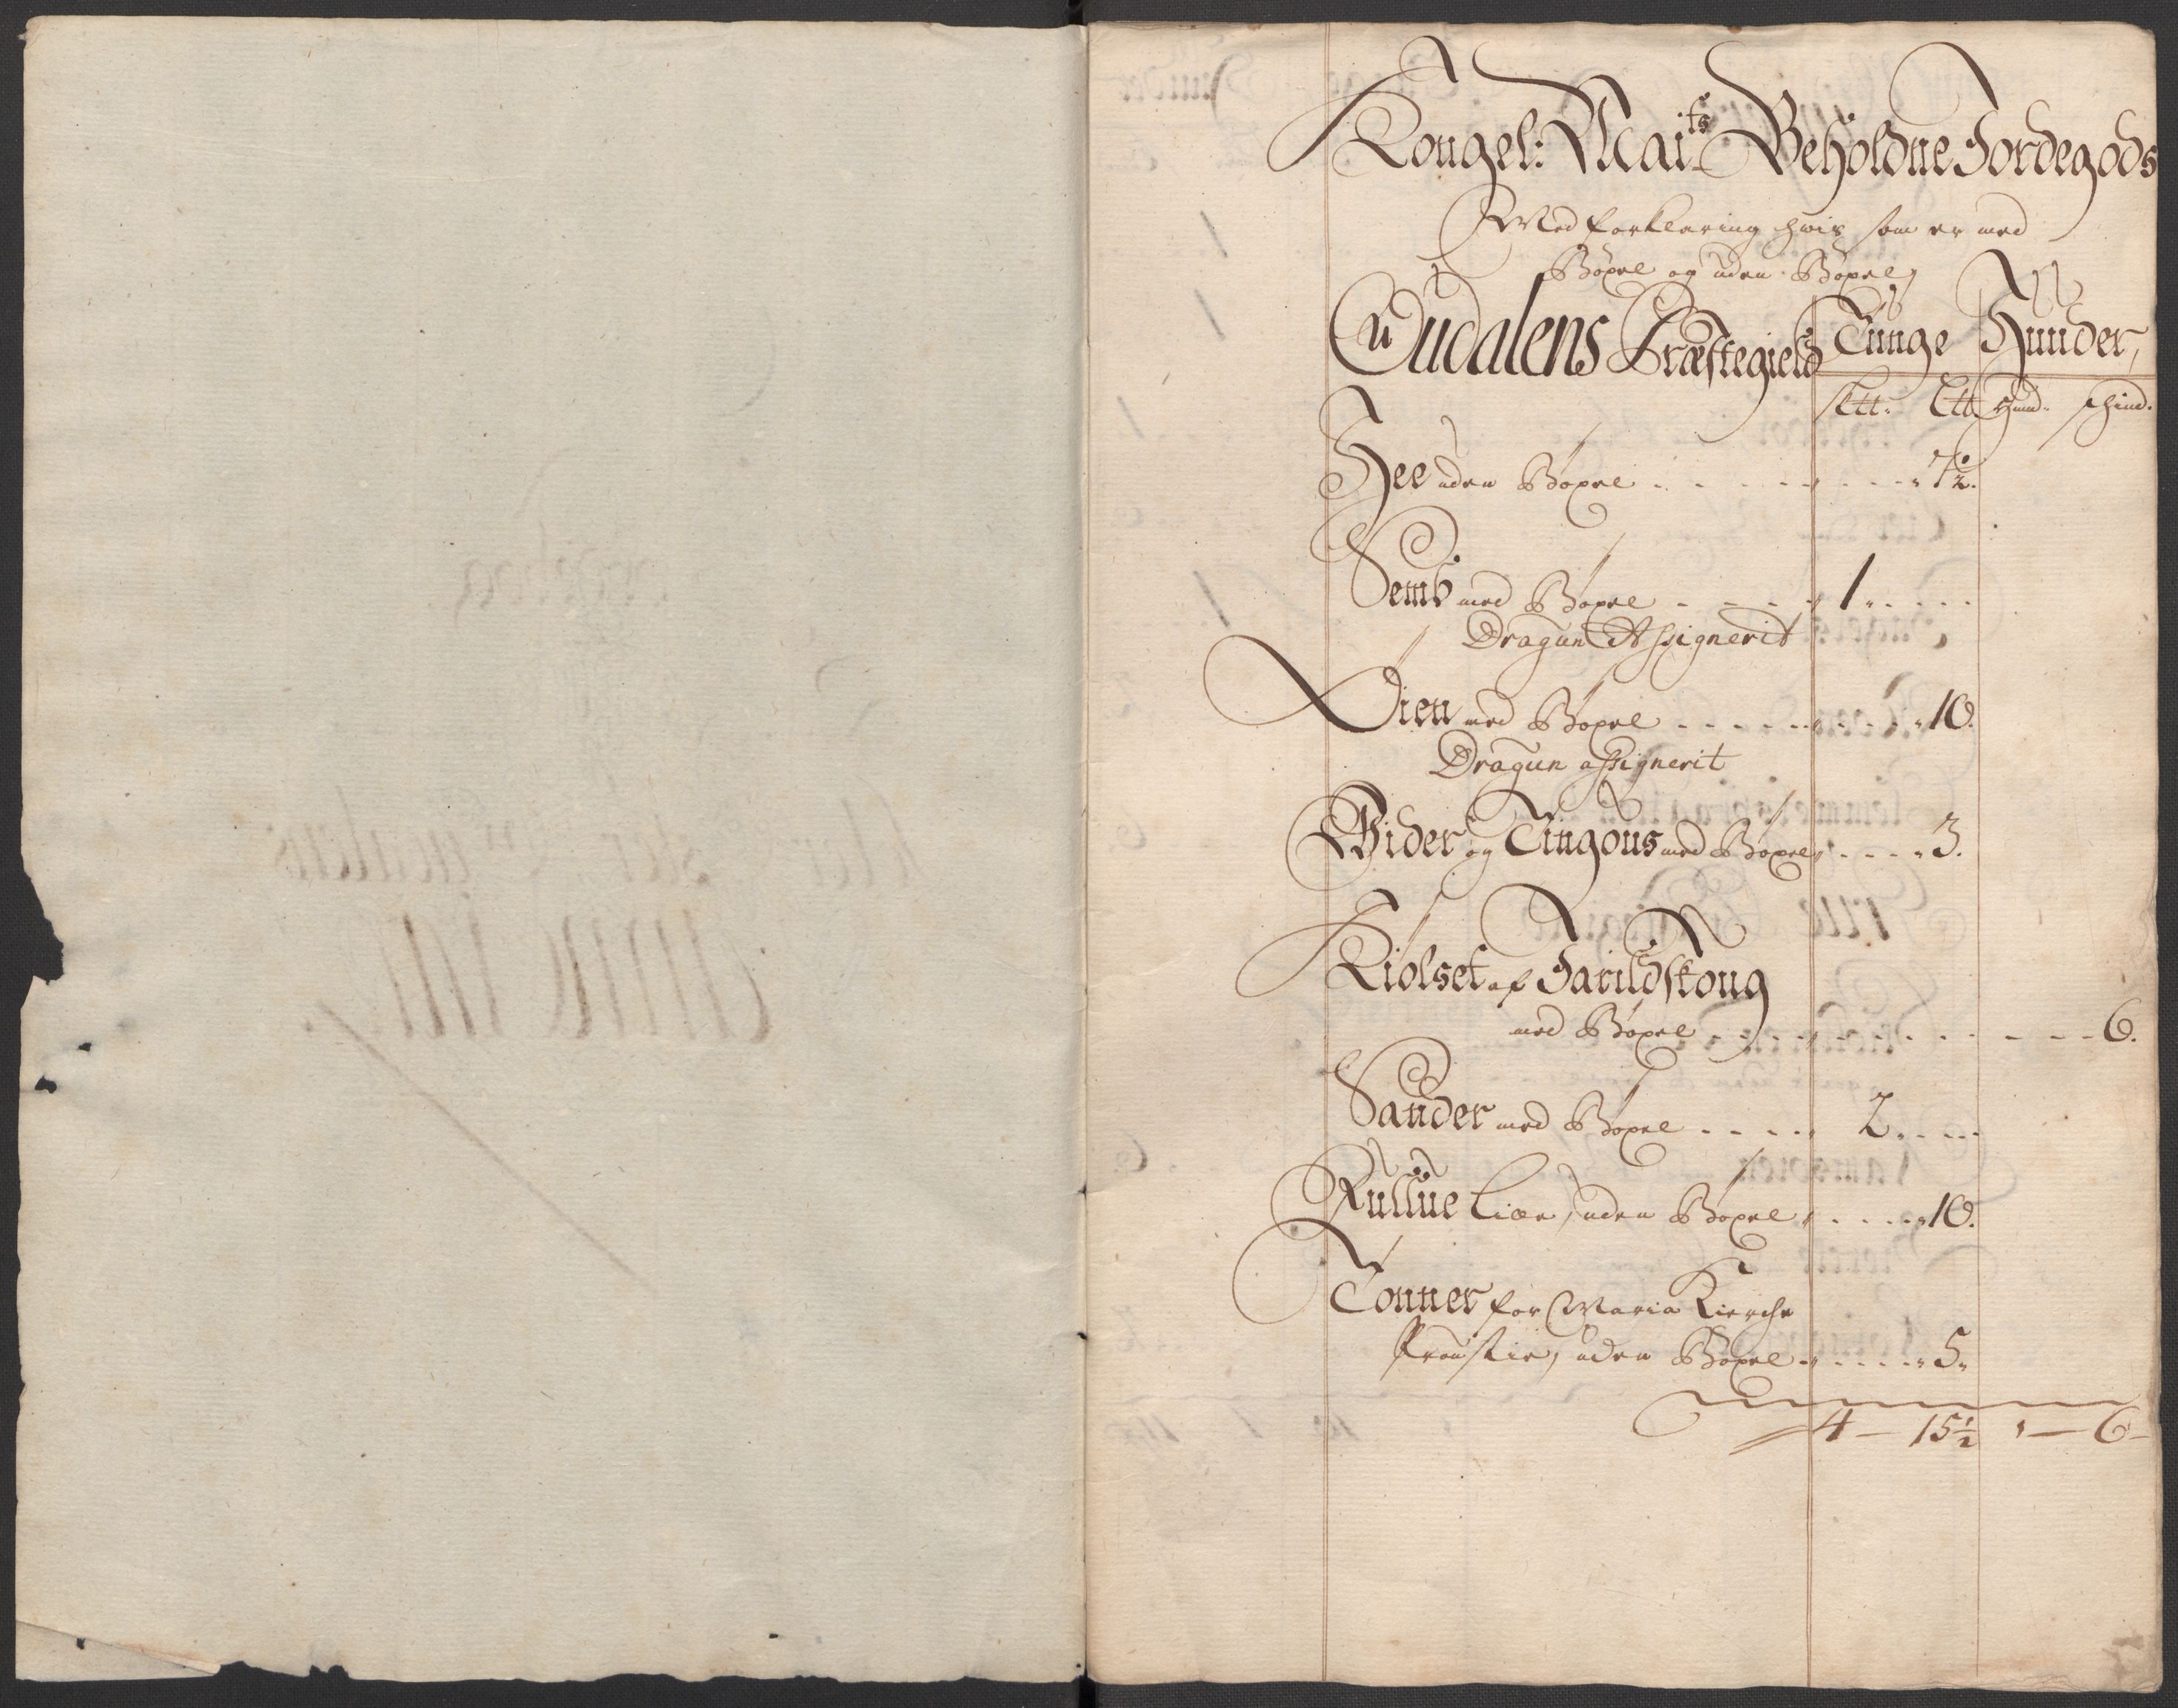 Kongel: Mai:ts Beholdne Jordegods
Med forklaring hvis som er med
Böxel og uden Böxel,
Oudalens Præstegield Tunge Huuder,
sk℔: L℔ Huud: schind.
Hee uden Böxel 7½.
Semb med Böxel 1
Dragun Assignerit
Öien med Böxel 10.
Dragun assignerit
Wider og Tingous med Böxel 3.
Kiölset af Jarildskoug
med Böxel 6.
Sander med Böxel 2
Kullüe Lien, uden Böxel 10.
Tonner for Maria Kierche
Proustie, uden Böxel 5
4 – 15½ – 6